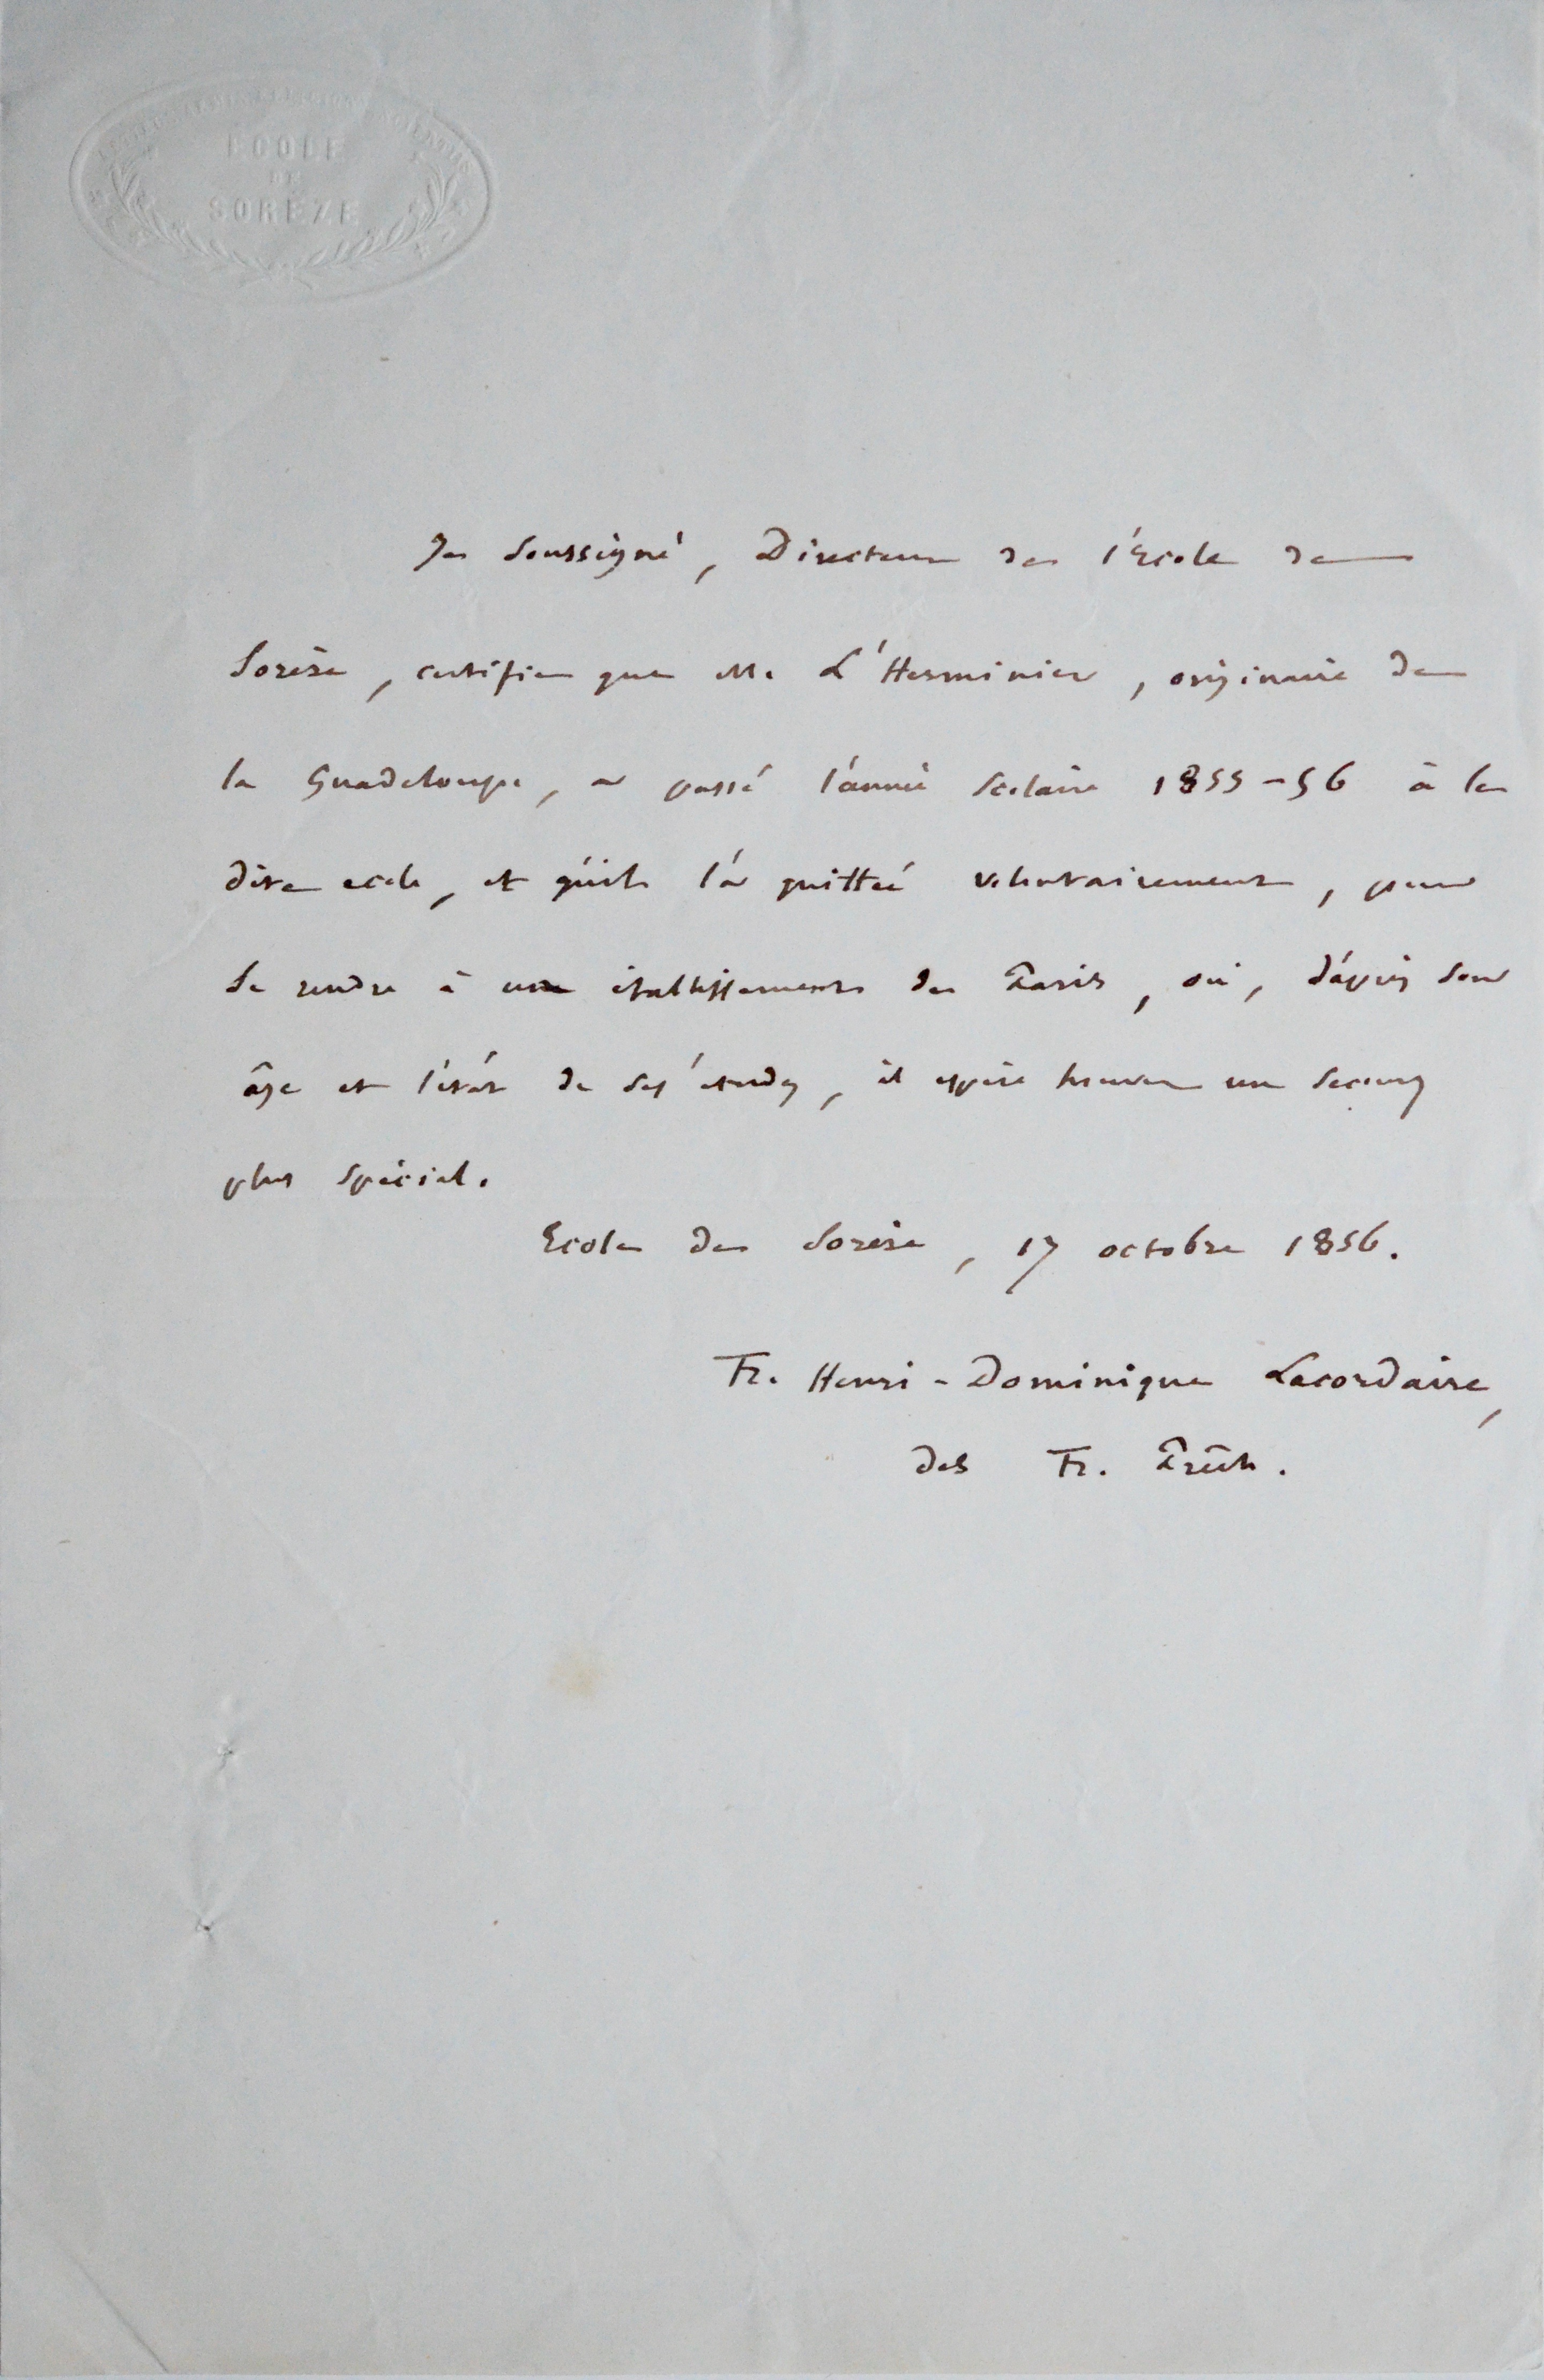 ECOLE
DE
SORÈZE
Je soussigné, Directeur de l'école de
Sorèze, certifie que M. L'Herminier, originaire de
la Guadeloupe, a passé l'année scolaire 1855-56 à la
dite ecole, et qu'il l'a quittée volontairement, pour
se rendre à un établissement de Paris, où, d'après son
âge et l'état de ses études, il espère trouver un secours
plus spécial.
Ecole de Sorèze, 17 octobre 1856.
Fr. Henri-Dominique Lacordaire,
des Fr. Prêch.